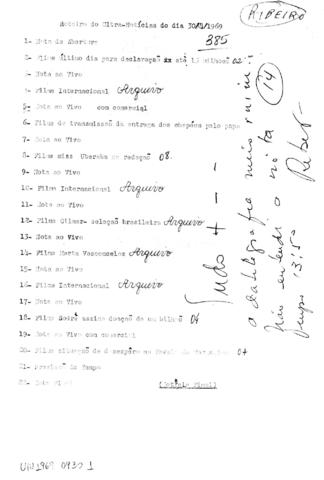 RIBEIRO
Roteiro do Ultra-Notícias do dia 30/4/1969
385
1- Nota de Abertura
2- Filme Último dia para declaração xx até 15 milhões 02
3- Nota ao Vivo
4- Filme Internacional Arquivo
5- Nota ao Vivo com comercial
6- Filme de transmissão da entrega dos chapéus pelo papa
7- Nota ao Vivo
8- Filme miss Uberaba na redação 08.
9- Nota ao Vivo
10- Filme Internacional Arquivo
11- Nota ao Vivo
12- Filme Gilmar- seleção brasileira Arquivo
13- Nota ao Vivo
14- Filme Marta Vasconcelos Arquivo
15- Nota ao Vivo
16- Filme Internacional Arquivo
17- Nota ao Vivo
18- Filme Sobre assina doação de um bilhão 04
19- Nota ao Vivo com comercial
20- Filme situação de desespero no 04
21- Previsão do Tempo
22- Nota Final (Notícia Final)
14
Tudo + -
a datilografia meio ruim:
não entendi o nota
Ribeiro
Tempo 13:50
UN1969 0930 1